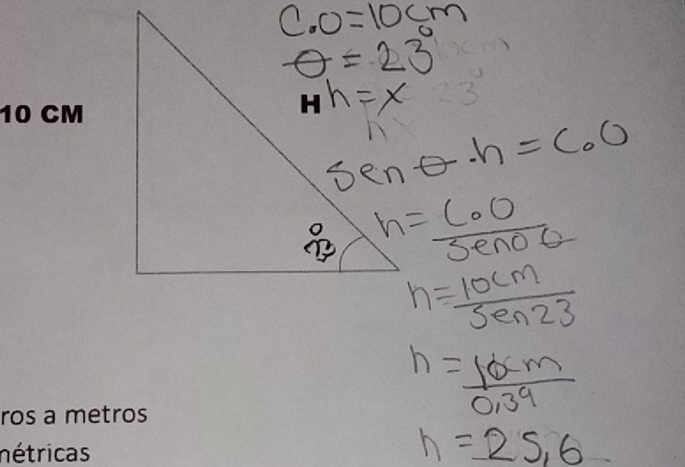 C.O=10cm
θ = 23°
10 CM
H h=x
sen θ.h = C.O
23°
h= C.O
Seno θ
h= 10cm
Sen23
h = 10cm
0,39
h = 25,6
ros a metros
nétricas